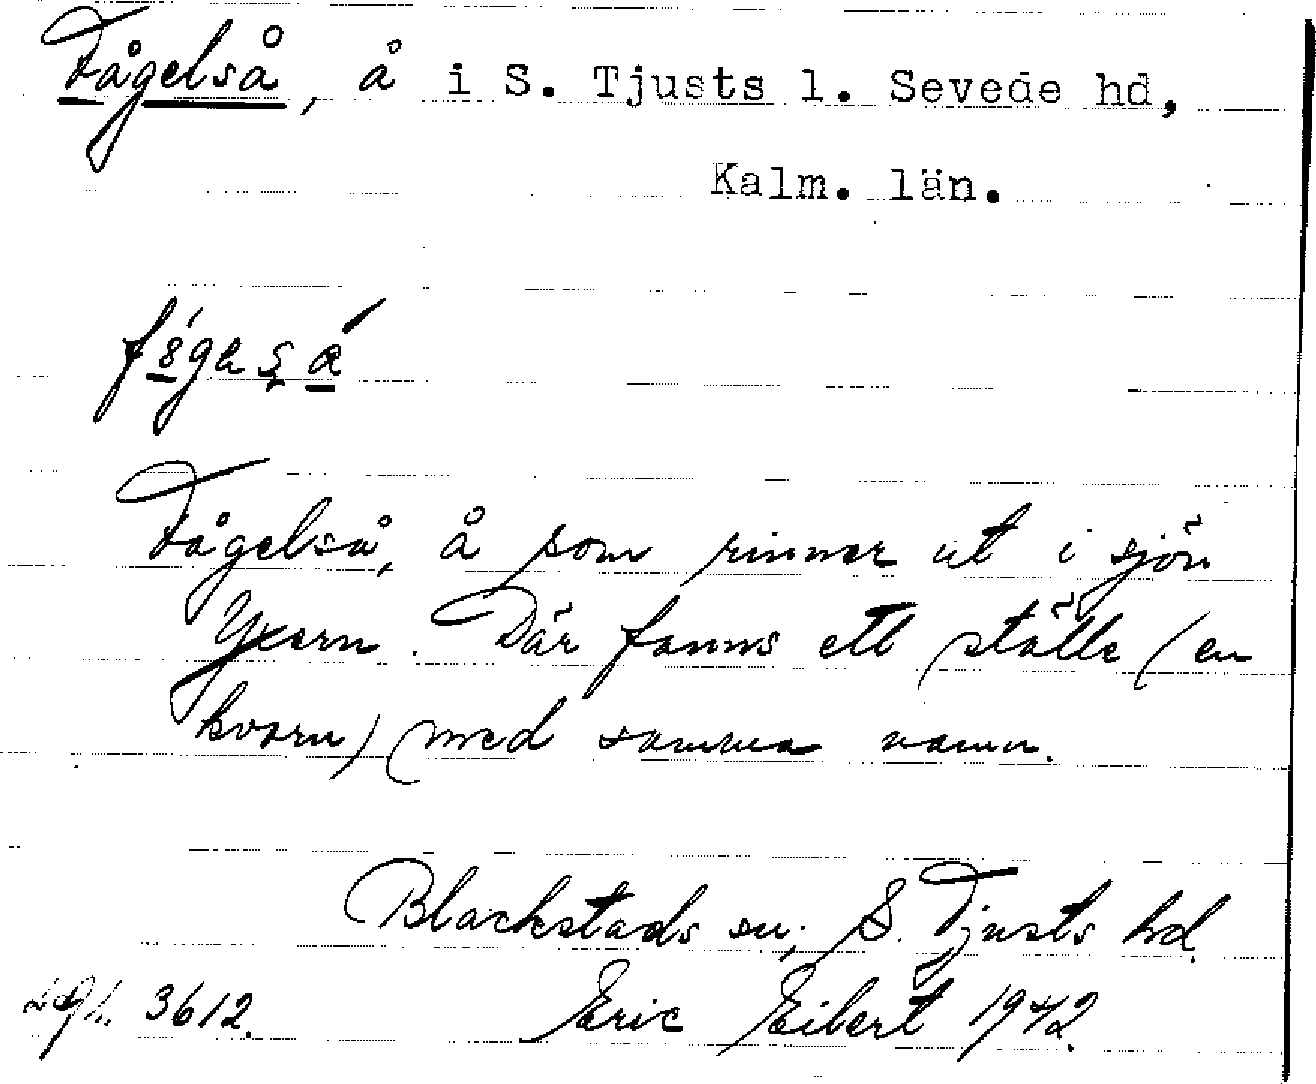 Fågelså, å i S. Tjusts l. Sevede hd,
Kalm. län.
Fågelså, å som rinner ut i sjön
Yxern. Där fanns ett ställe (en
kvarn) med samma namn.
Blackstads sn; S. Tjusts hd.
3612. Eric Eibert 1942.